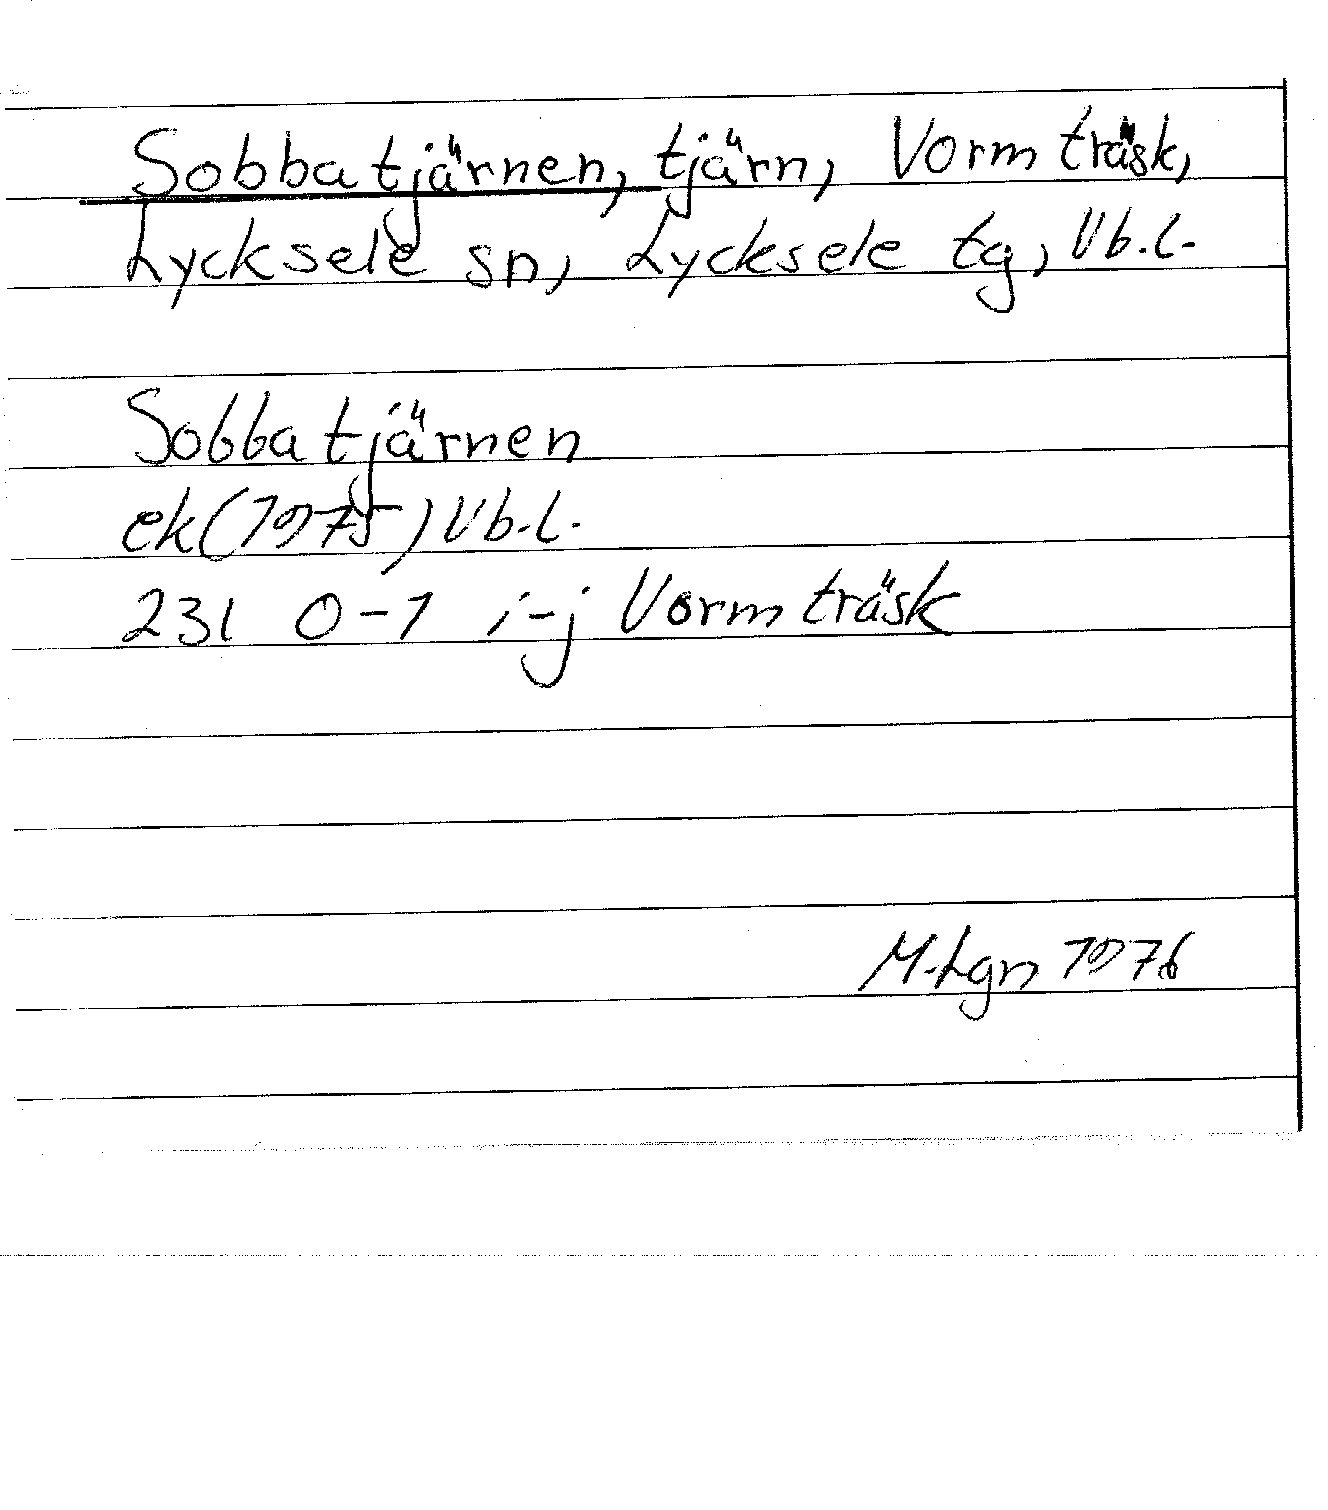 Sobbatjärnen, tjärn, Vormträsk,
Lycksele sn, Lycksele tg, Vb.l.
Sobbatjärnen
ek(1975)Vb.l.
231 0-1 i-j Vormträsk
M.Lgn 1976